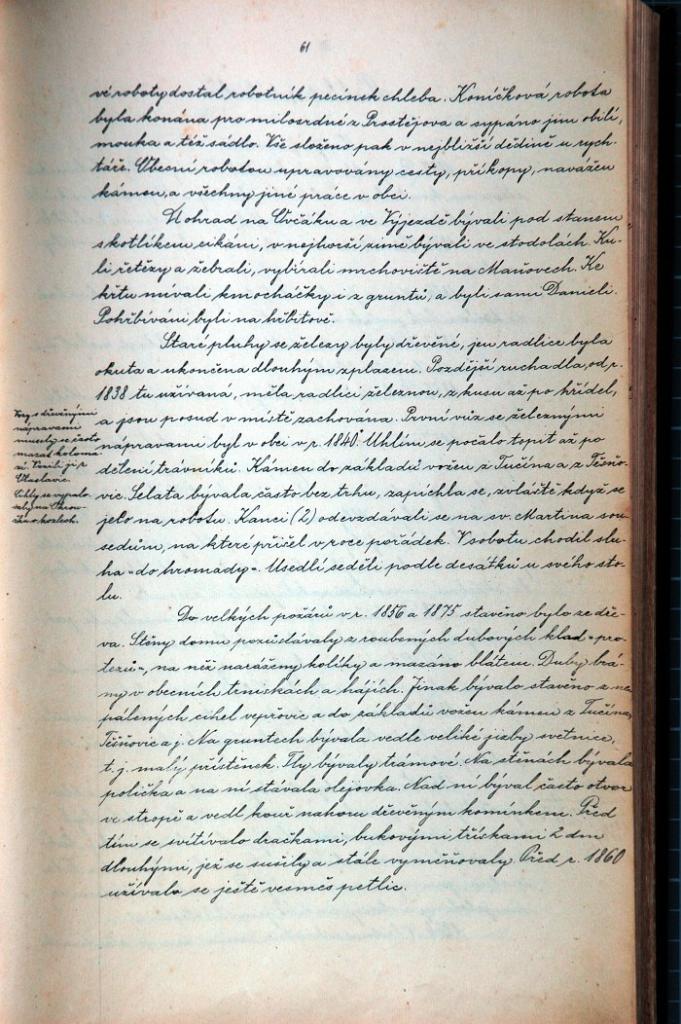 61
vé roboty dostal robotník pecínek chleba. Koníčková robota
byla konána pro milosrdné z Prostějova a sypáno jim obilí,
mouka a též sádlo. Vše složeno pak v nejbližší dědině u rych-
táře. Obecní robotou upravovány cesty, příkopy, navážen
kámen, a všechny jiné práce v obci.
U ohrad na Ovčáku a ve Výjezdě bývali pod stanem
s kotlíkem cikáni, v nejhorší zimě bývali ve stodolách. Ku-
li řetězy a žebrali, vybírali mrchoviště na Maňovech. Ke
křtu mívali kmocháčky i z gruntů, a byli sami Danieli.
Pohřbíváni byli na hřbitově.
Staré pluhy se železy byly dřevěné, jen radlice byla
okuta a ukončena dlouhým zplazem. Pozdější ruchadla, od r.
1838 tu užívaná, měla radlici železnou, z kusu až po hřídel,
a jsou posud v místě zachována. První vůz se železnými
nápravami byl v obci v r. 1840. Uhlím se počalo topit až po
dělení trávníků. Kámen do základů vožen z Tučína a z Těšno-
vic. Selata bývala často bez trhu, zapíchla se, zvláště když se
jelo na robotu. Kanci (2) odevzdávali se na sv. Martina sou-
sedům, na které přišel v roce pořádek. V sobotu chodil slu-
ha "do hromady". Usedlí seděli podle desátků u svého sto-
lu.
Do velkých požárů v r. 1856 a 1875 stavěno bylo ze dře-
va. Stěny domu pozůstávaly z roubených dubových klad "pro-
tezů", na něž naráženy kolíky a mazáno blátem. Duby brá-
ny v obecních trnickách a hájích. Jinak bývalo stavěno z ne-
pálených cihel vepřovic a do základů vožen kámen z Tučína,
Těšňovic a j. Na gruntech bývala vedle veliké jizby světnice,
t. j. malý přístěnek. Tly bývaly trámové. Na stěnách bývala
polička a na ní stávala olejovka. Nad ní býval často otvor
ve stropě a vedl kouř nahoru dřevěným komínkem. Před
tím se svítívalo dračkami, bukovými třískami 2 dm
dlouhými, jež se sušily a stále vyměňovaly. Před r. 1860
užívalo se ještě vesměs petlic.
Vozy s dřevěnými
nápravami
musely se často
mazat koloma-
zí.
Cihly se